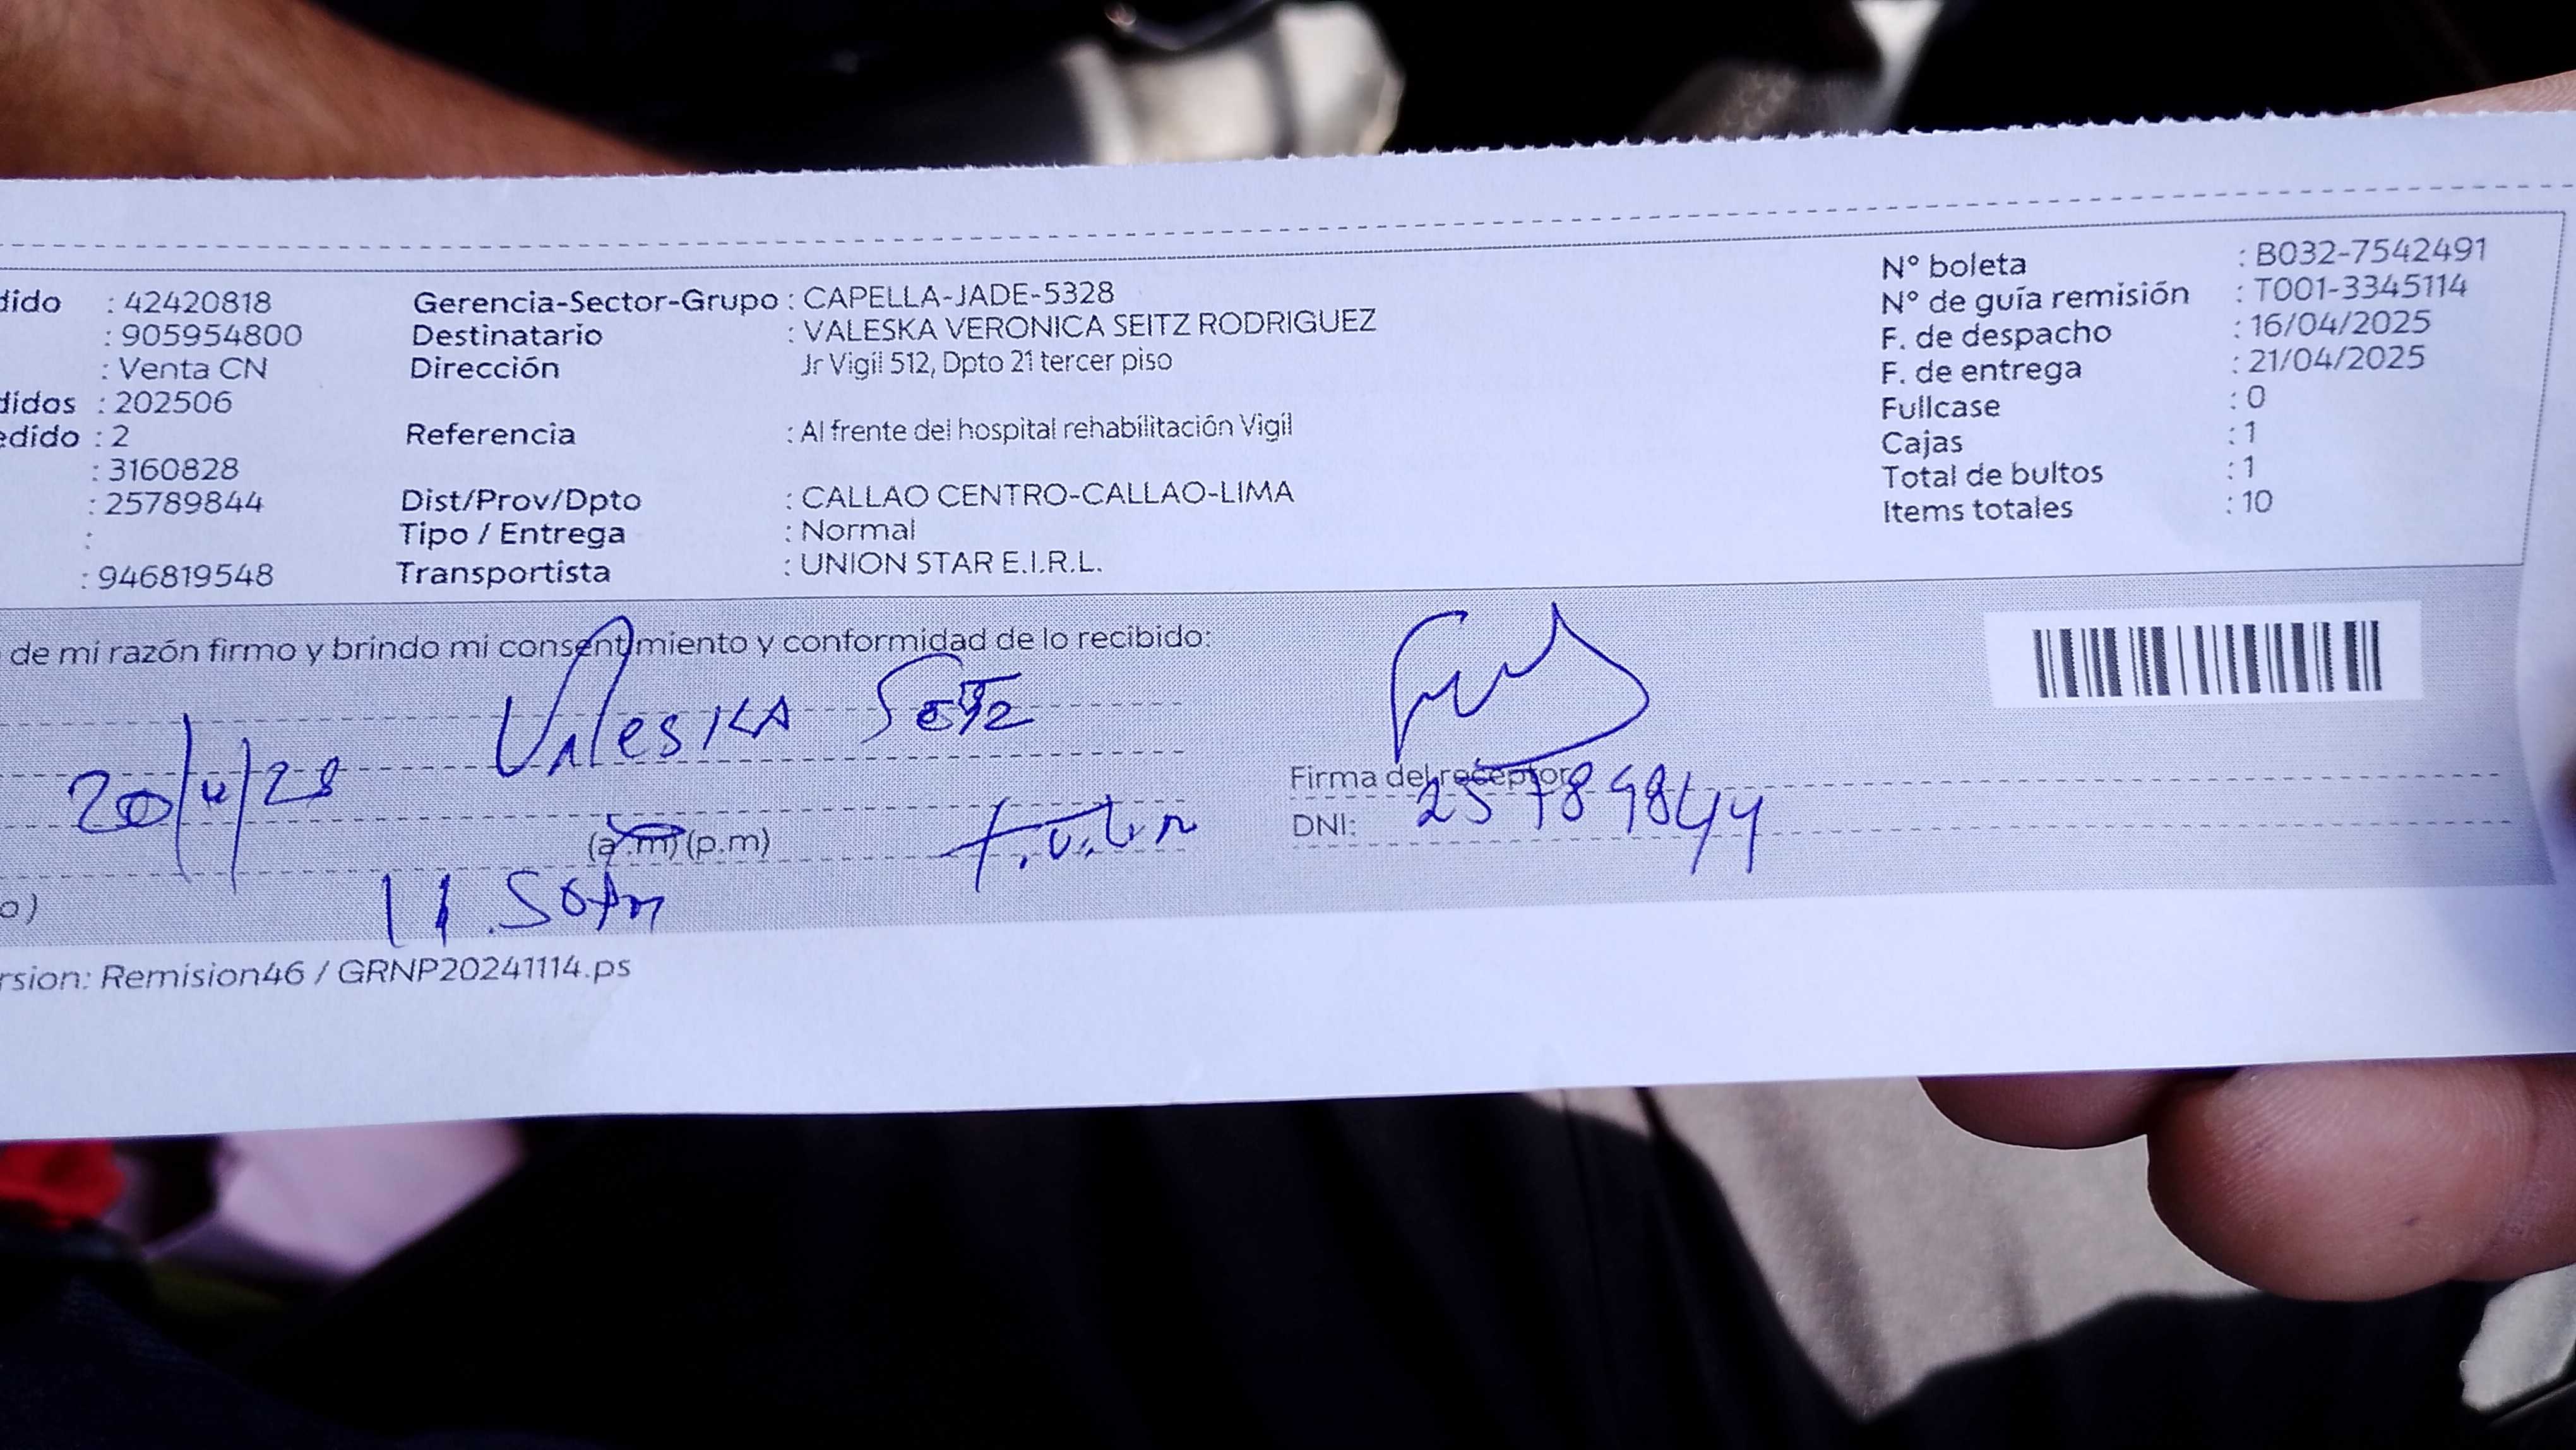 dido : 42420818 Gerencia-Sector-Grupo : CAPELLA-JADE-5328 Nº boleta : B032-7542491
: 905954800 Destinatario : VALESKA VERONICA SEITZ RODRIGUEZ Nº de guía remisión : T001-3345114
: Venta CN Dirección Jr Vigil 512, Dpto 21 tercer piso F. de despacho : 16/04/2025
didos : 202506 F. de entrega : 21/04/2025
edido : 2 Referencia : Al frente del hospital rehabilitación Vigil Fullcase : 0
: 3160828 Cajas : 1
: 25789844 Dist/Prov/Dpto : CALLAO CENTRO-CALLAO-LIMA Total de bultos : 1
: Tipo / Entrega : Normal Items totales : 10
: 946819548 Transportista : UNION STAR E.I.R.L.
de mi razón firmo y brindo mi consentimiento y conformidad de lo recibido:
Valeska Seitz
Firma del receptor
DNI: 25789844
(a.m) (p.m)
11.50Am
o)
rsion: Remision46 / GRNP20241114.ps